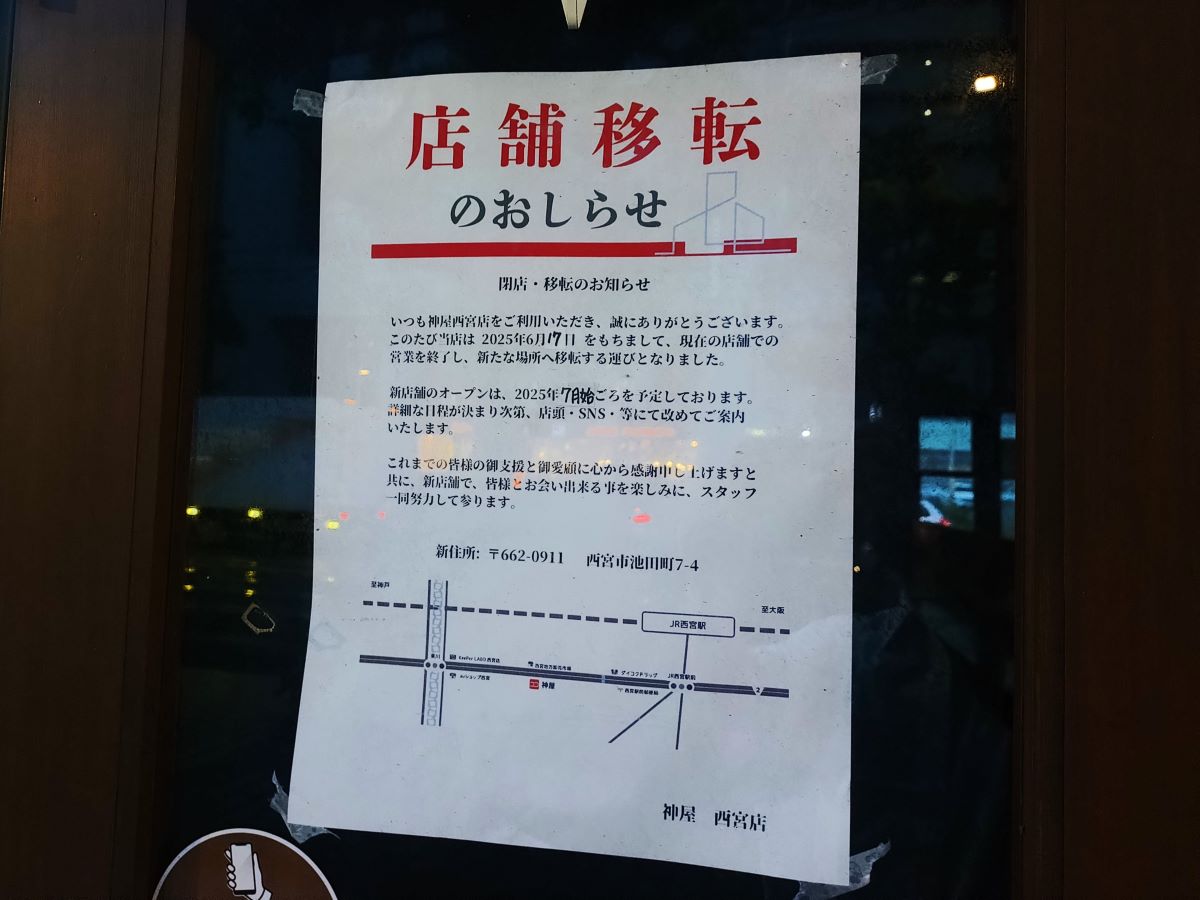 店舗移転
のおしらせ
閉店・移転のお知らせ
いつも神屋西宮店をご利用いただき、誠にありがとうございます。
このたび当店は 2025年6月17日 をもちまして、現在の店舗での
営業を終了し、新たな場所へ移転する運びとなりました。
新店舗のオープンは、2025年7月始ごろを予定しております。
詳細な日程が決まり次第、店頭・SNS・等にて改めてご案内
いたします。
これまでの皆様の御支援と御愛顧に心から感謝申し上げますと
共に、新店舗で、皆様とお会い出来る事を楽しみに、スタッフ
一同努力して参ります。
新住所: 〒662-0911 西宮市池田町7-4
至神戸
至大阪
JR西宮駅
KeePer LABO 西宮店
西宮地方卸売市場
ダイコクドラッグ
JR西宮駅前
auショップ西宮
神屋
西宮駅前郵便局
2
神屋 西宮店